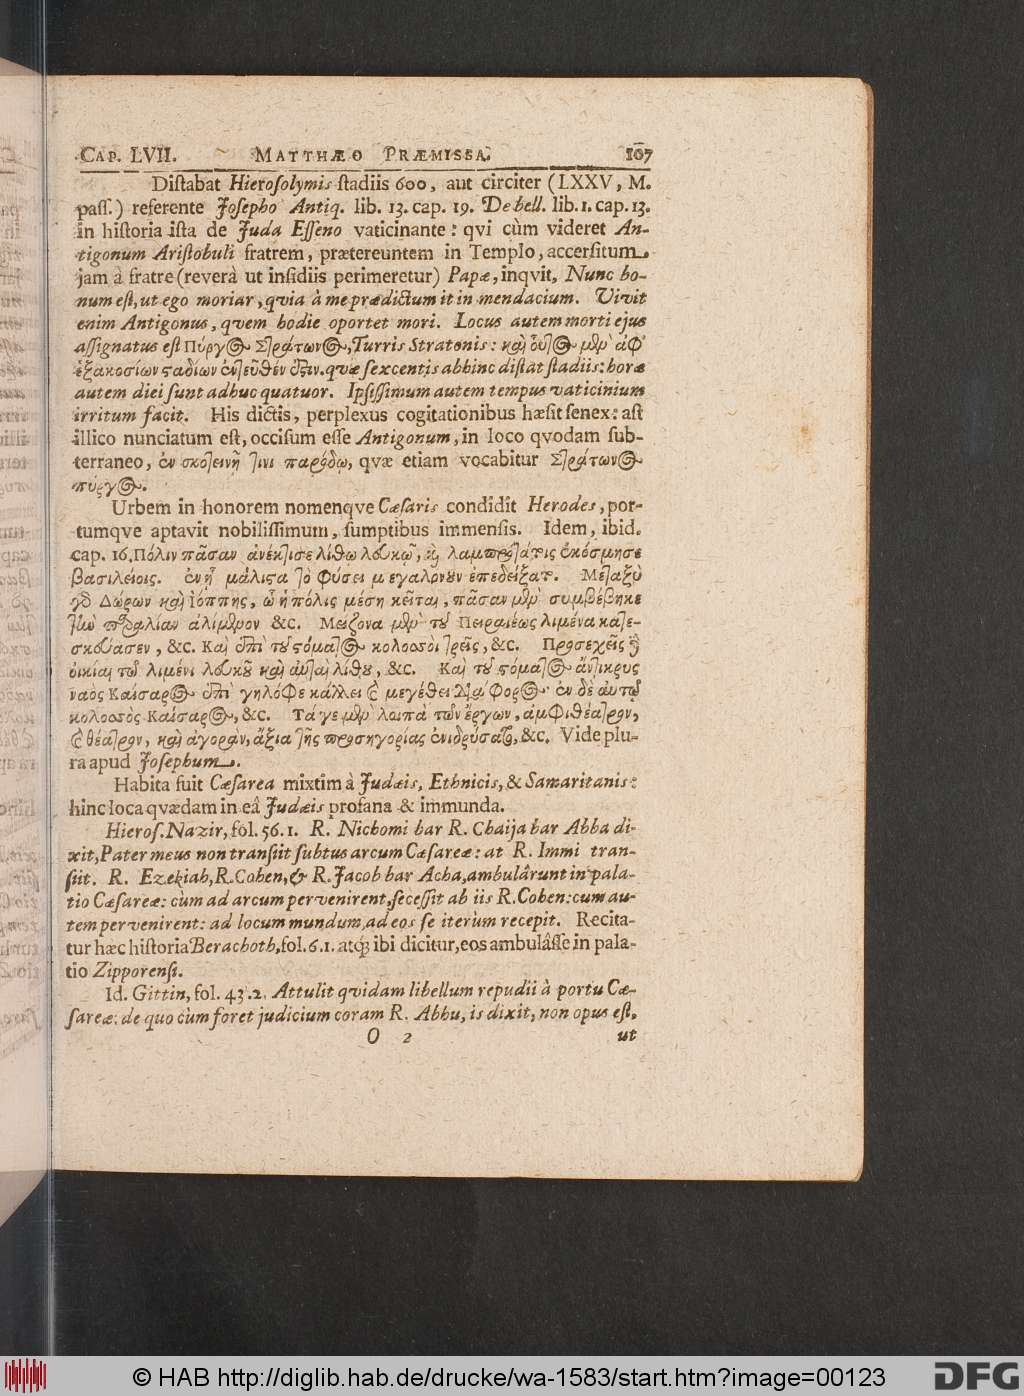 CAP. LVII. MATTHÆO PRÆMISSA. 107
Diſtabat Hieroſolymis ſtadiis 600, aut circiter (LXXV, M.
paſſ.) referente Joſepho Antiq. lib. 13. cap. 19. De bell. lib. 1. cap. 13.
in hiſtoria iſta de Juda Eſſeno vaticinante: qvi cùm videret An-
tigonum Ariſtobuli fratrem, prætereuntem in Templo, accerſitum
jam à fratre (reverà ut inſidiis perimeretur) Papæ, inqvit, Nunc bo-
num eſt, ut ego moriar, qvia à me prædictum it in mendacium. Vivit
enim Antigonus, qvem hodie oportet mori. Locus autem morti ejus
aſſignatus eſt Πύργος Στράτωνος, Turris Stratonis: καὶ οὗτος μὲν ἀφ'
ἑξακοσίων σταδίων ἐντεῦθέν ἐστιν. quæ ſexcentis abhinc diſtat ſtadiis: horæ
autem diei ſunt adhuc quatuor. Ipſiſſimum autem tempus vaticinium
irritum facit. His dictis, perplexus cogitationibus hæſit ſenex: aſt
illico nunciatum eſt, occiſum eſſe Antigonum, in loco qvodam ſub-
terraneo, ἐν σκοτεινῇ τινι παρόδῳ, qvæ etiam vocabitur Στράτωνος
πύργος.
Urbem in honorem nomenqve Cæſaris condidit Herodes, por-
tumqve aptavit nobiliſſimum, ſumptibus immenſis. Idem, ibid.
cap. 16. Πόλιν πᾶσαν ἀνέκτισε λίθω λευκῷ, καὶ λαμπροτάτοις ἐκόσμησε
βασιλείοις. ἐν ᾗ μάλιστα τὸ φύσει μεγαλόνουν ἐπεδείξατο. Μεταξὺ
γὸ Δώρων καὶ Ἰόππης, ὧ ἡ πόλις μέση κεῖται, πᾶσαν μὲν συμβέβηκε
τὴν παραλίαν ἀλίμενον &c. Μείζονα μὲν τοῦ Πειραιέως λιμένα κατε-
σκεύασεν, &c. Καὶ ἐπὶ τοῦ στόματος κολοσσοὶ τρεῖς, &c. Προσεχεῖς δὲ
οἰκίαι τῷ λιμένι λευκοῦ καὶ αὗται λίθου, &c. Καὶ τοῦ στόματος ἄντικρυς
ναὸς Καίσαρος ἐπὶ γηλόφε κάλλει καὶ μεγέθει διάφορος· ἐν δὲ αὐτῷ
κολοσσὸς Καίσαρος, &c. Τά γε μὲν λοιπὰ τῶν ἔργων, ἀμφιθέατρον,
καὶ θέατρον, καὶ ἀγοραν, ἄξια τῆς προσηγορίας ἐνιδρύσατο, &c. Vide plu-
ra apud Joſephum.
Habita fuit Cæſarea mixtim à Judæis, Ethnicis, & Samaritanis:
hinc loca qvædam in eâ Judæis profana & immunda.
Hieroſ. Nazir, fol. 56. 1. R. Nichomi bar R. Chaija bar Abba di-
xit, Pater meus non tranſiit ſubtus arcum Cæſareæ: at R. Immi tran-
ſiit. R. Ezekiah, R. Cohen, & R. Jacob bar Acha, ambulârunt in pala-
tio Cæſareæ: cùm ad arcum pervenirent, ſeceſſit ab iis R. Cohen: cum au-
tem pervenirent: ad locum mundum, ad eos ſe iterùm recepit. Recita-
tur hæc hiſtoria Berachoth, fol. 6. 1. atq; ibi dicitur, eos ambulâſſe in pala-
tio Zipporenſi.
Id. Gittin, fol. 43. 2. Attulit qvidam libellum repudii à portu Cæ-
ſareæ: de quo cùm foret judicium coram R. Abhu, is dixit, non opus eſt,
O 2 ut
© HAB http://diglib.hab.de/drucke/wa-1583/start.htm?image=00123
DFG